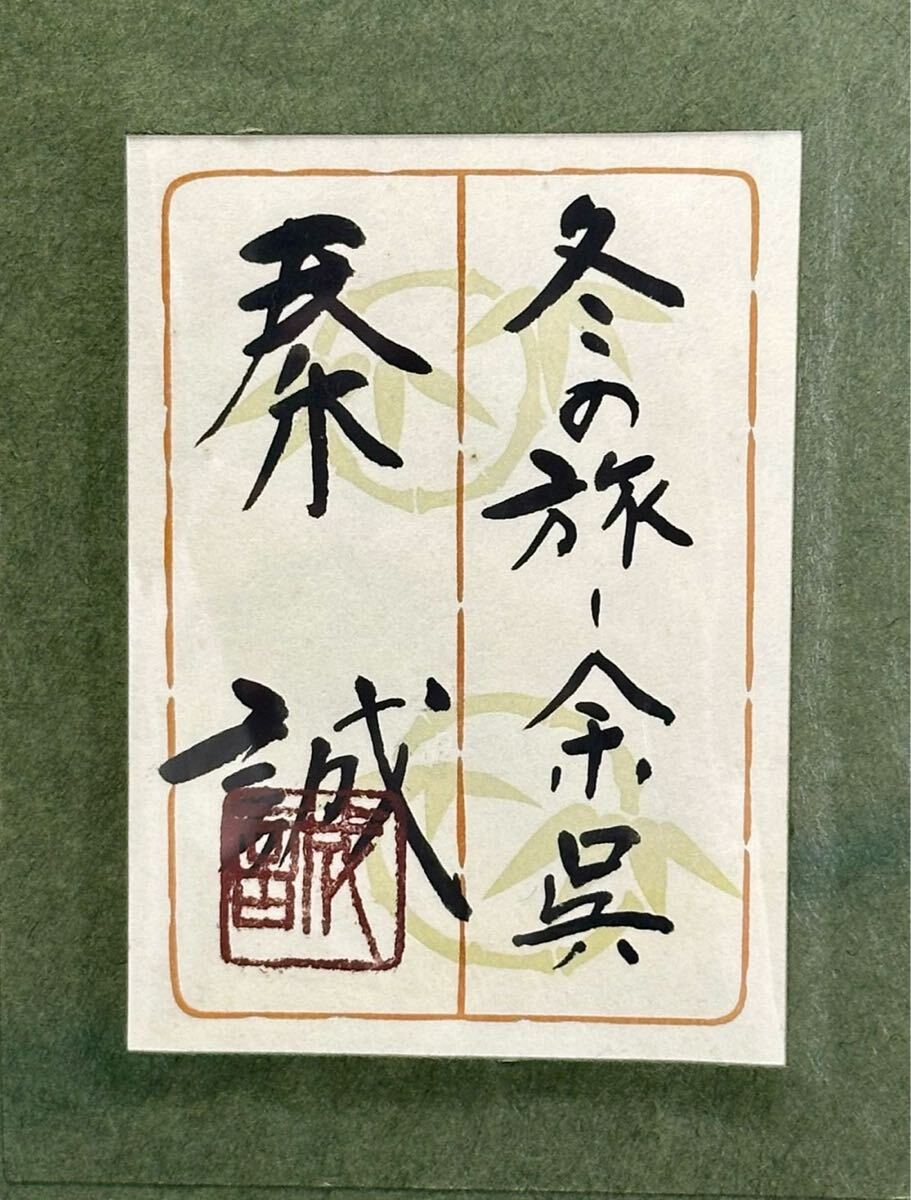 冬の旅ー余呉
秦 誠
誠